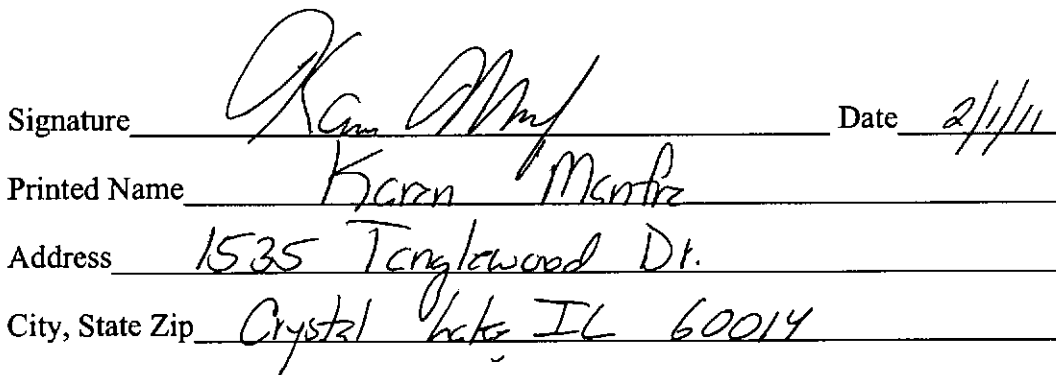 Signature Date 2/1/11
Printed Name Karen Manfre
Address 1535 Tanglewood Dr.
City, State Zip Crystal Lake, IL 60014